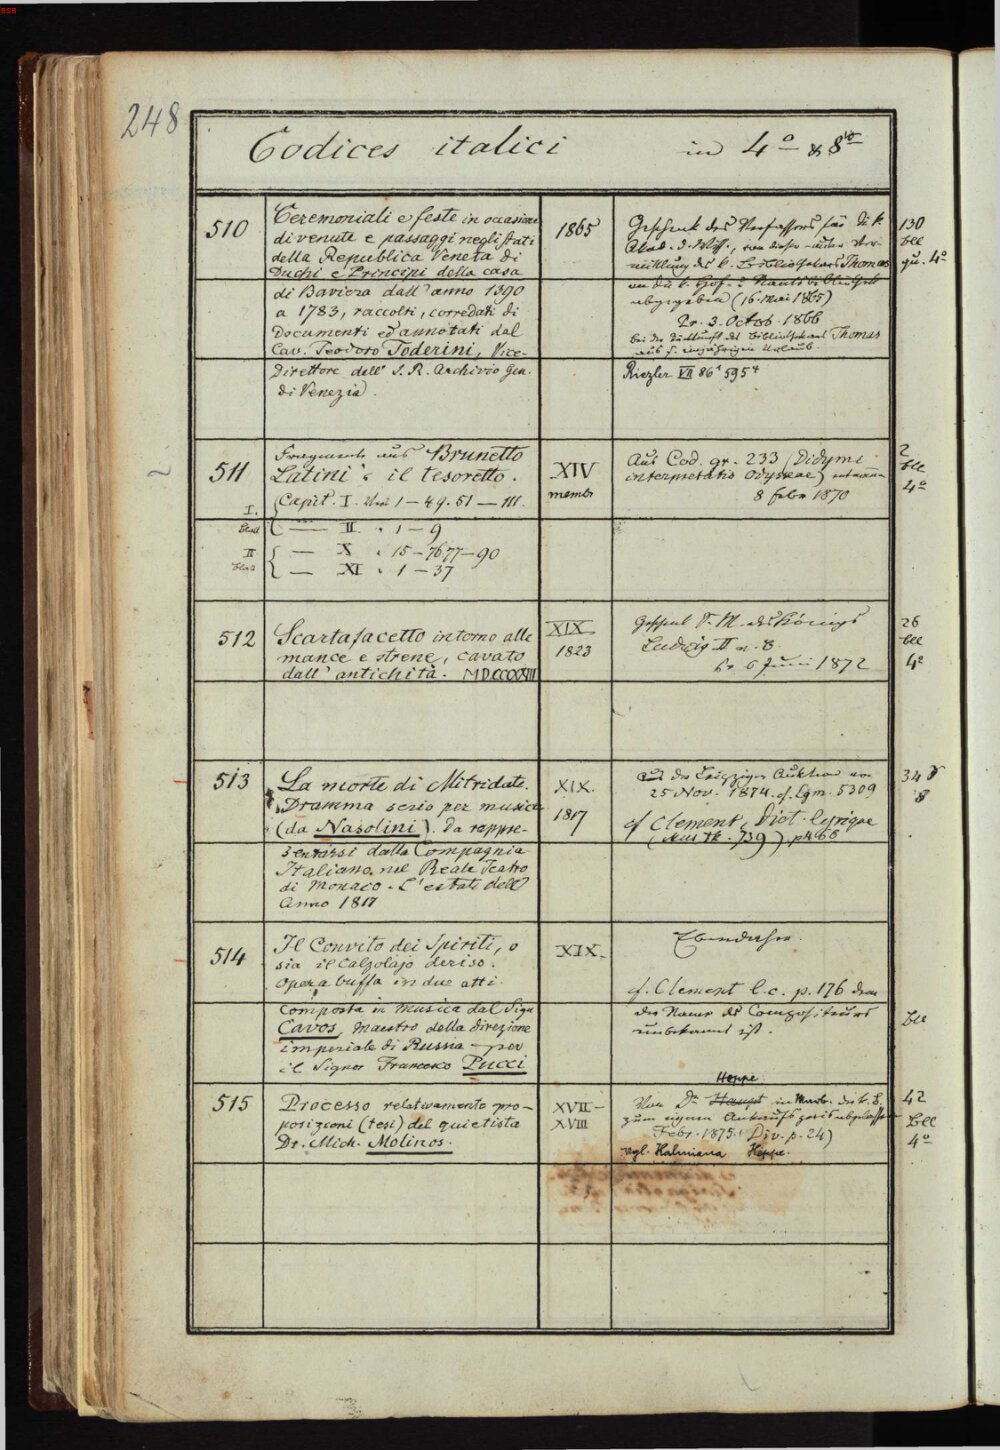 248
Codices italici in 4º & 8º
510
Ceremoniali e feste in occasione
di venute e passaggi negli stati
della Republica Veneta di
Duchi e Principi della casa
di Baviera dall' anno 1390
a 1783, raccolti, corredati di
Documenti ed annotati dal
Cav. Teodoro Toderini, Vice-
Direttore dell' I. R. Archivio Gen.
di Venezia.
1865
Geschenk des Verfassers für die k.
Akad. d. Wiss., von dieser unter Ver-
mittlung des k. Bibliothekars Thomas
an die k. Hof- u Staatsbibliothek
abgegeben (16. Mai 1865)
Pr. 3. Octob. 1866
bei der Rückkunft des Bibliothekars Thomas
aus s. einjährigen Urlaub.
Riezler VII 86¹ 595⁴
130
bll
qu. 4º
511
Fragmente aus Brunetto
Latini's il tesoretto.
I. Capit. I. 1-49. 51-111.
Blatt — II. " 1-9
II — X " 15-76 77-90
Blatt — XI " 1-37
XIV
membr
Aus Cod. gr. 233 (Didymi
interpretatio Odysseae)
8 Febr 1870
2
bll
4º
512
Scartafacetto intorno alle
mance e strene, cavato
dall' antichità. MDCCCXXIII
XIX
1823
Geschenk S. M. des Königs
Ludwig II
6 Juni 1872
26
bll
4º
513
La morte di Mitridate.
Dramma serio per musica
(da Nasolini). Da rappre-
sentarsi dalla Compagnia
Italiana nel Reale Teatro
di Monaco. L'estate dell'
Anno 1817
XIX.
1817
aus der Leipziger Auktion von
25 Nov. 1874. cf. Cgm. 5309
cf Clement, Dict. lyrique
(Mus. th. 739). p. 466
34
8
514
Il Convito dei Spiriti, o
sia il Calzolajo deriso.
Opera buffa in due atti.
Composta in musica dal Sigr
Cavos, maestro della direzione
imperiale di Russia — per
il Signor Francesco Pucci
XIX.
Ebendaher.
cf. Clement l. c. p. 176
der Name des Compositeurs
unbekannt ist.
bll
515
Processo relativamente pro-
posizioni (tesi) del quietista
Dr. Mich. Molinos.
XVII-
XVIII
Heppe
Von Dr. Haupt in Marb. der k. B.
zum eigenen Ankaufspreis abgelassen
Febr. 1875. (Div. p. 24)
vgl. Halmiana Heppe.
42
bll
4º